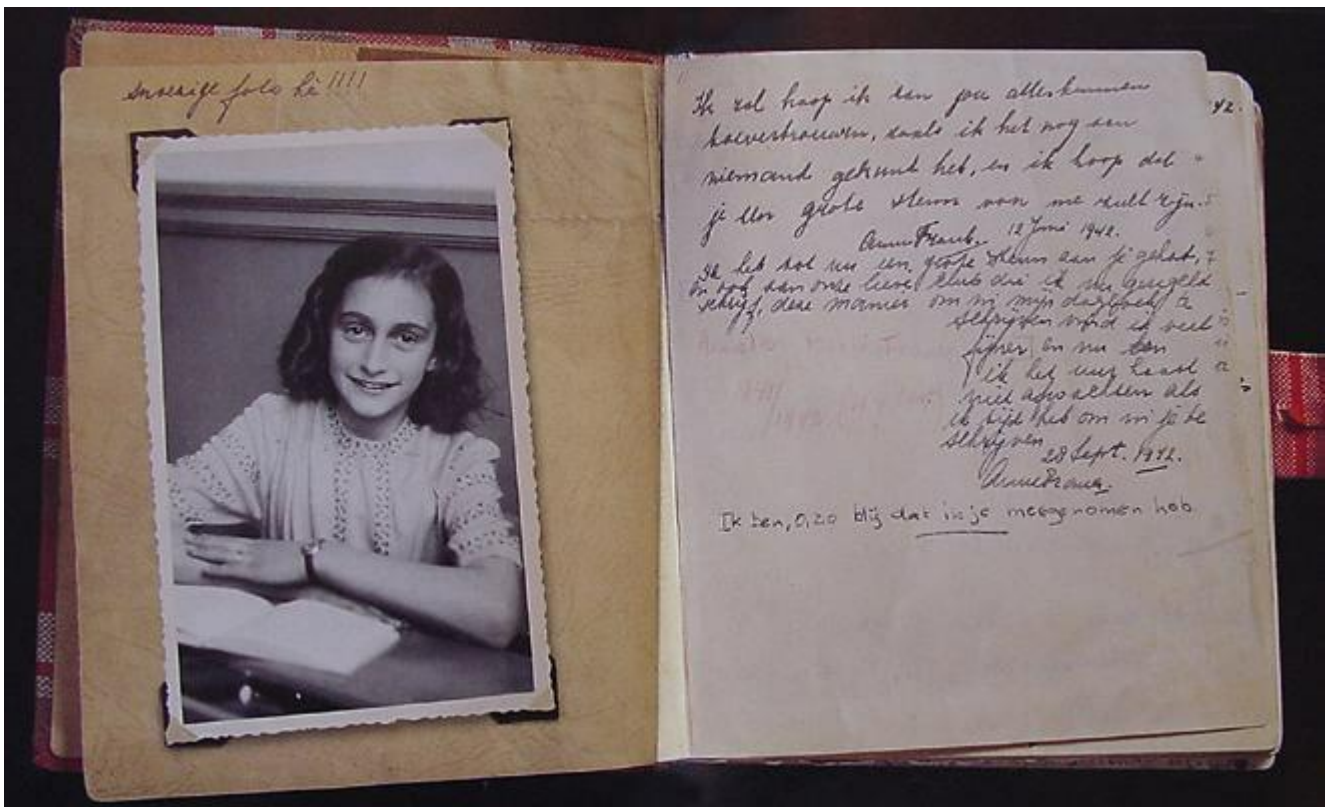 snoezige foto hè!!!!
Ik zal hoop ik aan jou alles kunnen
toevertrouwen, zoals ik het nog aan
niemand gekunt heb, en ik hoop dat
je een grote steun van me zult zijn.
Anne Frank. 12 Juni 1942.
Ik heb tot nu een grote steun aan je gehad,
en ook aan onze lieve club die ik nu geregeld
schrijf, deze manier om in mijn dagboek te
schrijven vind ik veel
fijner en nu kan
ik het uur haast
niet afwachten als
ik tijd heb om in je te
schrijven
28 Sept. 1942.
Anne Frank.
Ik ben, o, zo blij dat ik je meegenomen heb
42.